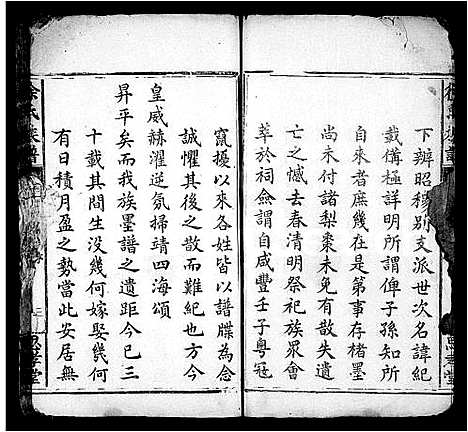 下辨昭穆別支派世次名諱紀
載備極詳明所謂俾子孫知所
自來者庶幾在是第事存楮墨
尚未付諸梨棗未免有散失遺
亡之憾去春清明祭祀族眾會
萃於祠僉謂自咸豐壬子粵冦
竄擾以來各姓皆以譜牒為念
誠懼其後之散而難紀也方今
皇威赫濯逆氛掃靖四海頌
昇平矣而我族墨譜之遺距今已三
十載其間生沒幾何嫁娶幾何
有日積月盈之勢當此安居無
氏族譜